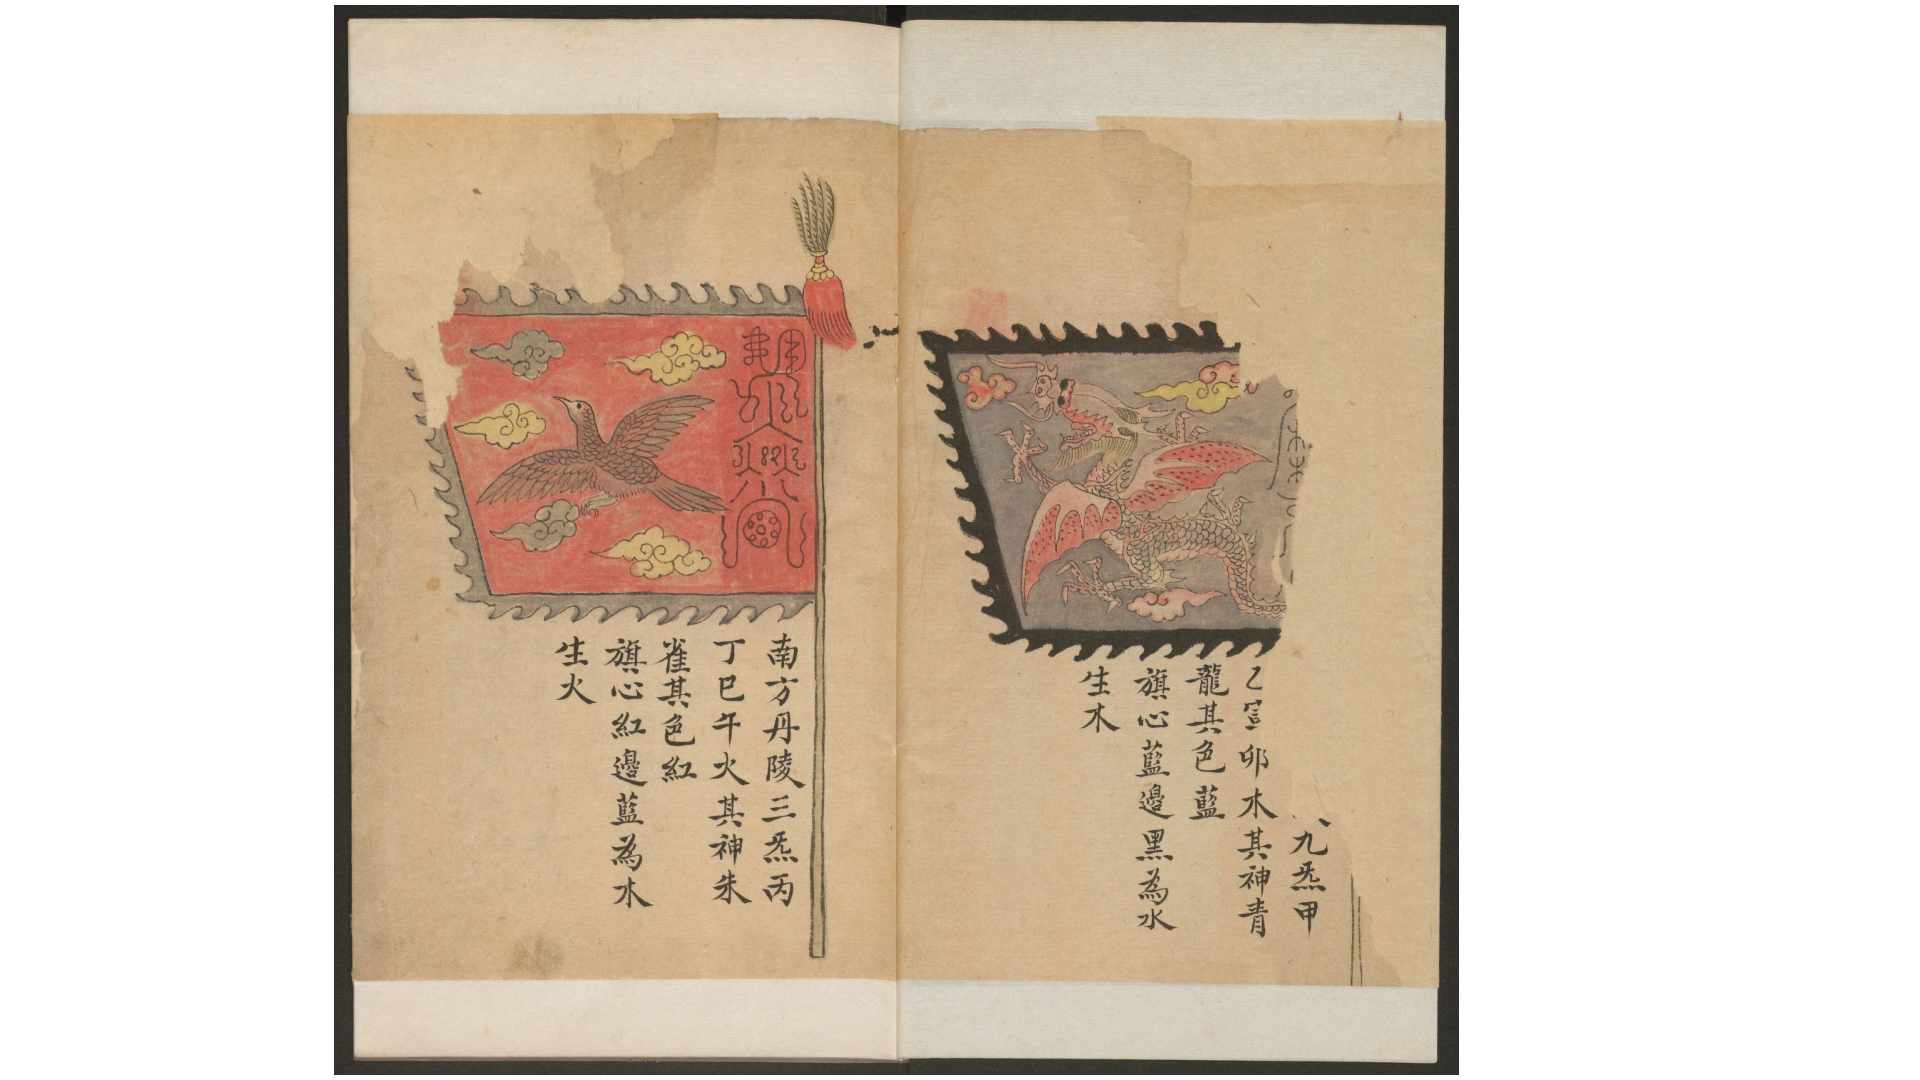 九炁甲
乙寅卯木其神青
龍其色藍
旗心藍邊黑為水
生木
南方丹陵三炁丙
丁巳午火其神朱
雀其色紅
旗心紅邊藍為木
生火